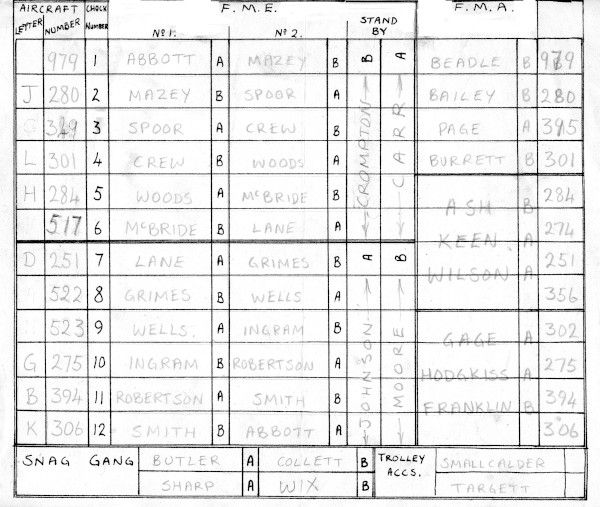 AIRCRAFT CHOCK F.M.E. STAND BY F.M.A.
LETTER NUMBER NUMBER Nº1. Nº2.
979 1 ABBOTT A MAZEY B B A BEADLE B 979
J 280 2 MAZEY B SPOOR A BAILEY B 280
3 SPOOR A CREW B PAGE A 395
L 301 4 CREW B WOODS A CROMPTON CARR BURRETT B 301
H 284 5 WOODS A McBRIDE B ASH B 284
517 6 McBRIDE B LANE A KEEN. A 274
D 251 7 LANE A GRIMES B A B WILSON A 251
522 8 GRIMES B WELLS A 356
523 9 WELLS. A INGRAM B GAGE A 302
G 275 10 INGRAM B ROBERTSON A JOHNSON MOORE HODGKISS A 275
B 394 11 ROBERTSON A SMITH B FRANKLIN B 394
K 306 12 SMITH B ABBOTT A 306
SNAG GANG BUTLER A COLLETT B TROLLEY ACCS. SMALLCALDER
SHARP A WIX B TARGETT